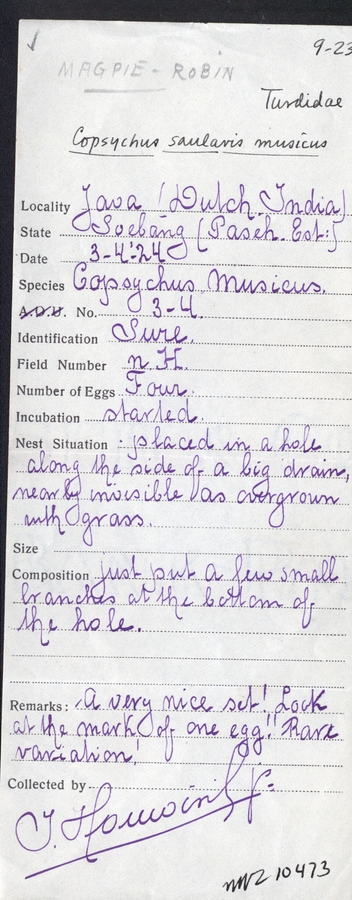 9-23
MAGPIE - ROBIN
Turdidae
Copsychus saularis musicus
Locality Java (Dutch India)
State Soebang (Paseh. Est:)
Date 3-4-'24
Species Copsychus Musicus.
A.O.U. No. 3-4.
Identification Sure.
Field Number n H.
Number of Eggs Four.
Incubation started.
Nest Situation : placed in a hole
along the side of a big drain,
nearby invisible as overgrown
with grass.
Size
Composition just put a few small
branches at the bottom of
the hole.
Remarks: A very nice set! Look
at the mark of one egg!! Rare
variation!
Collected by
J.
10473